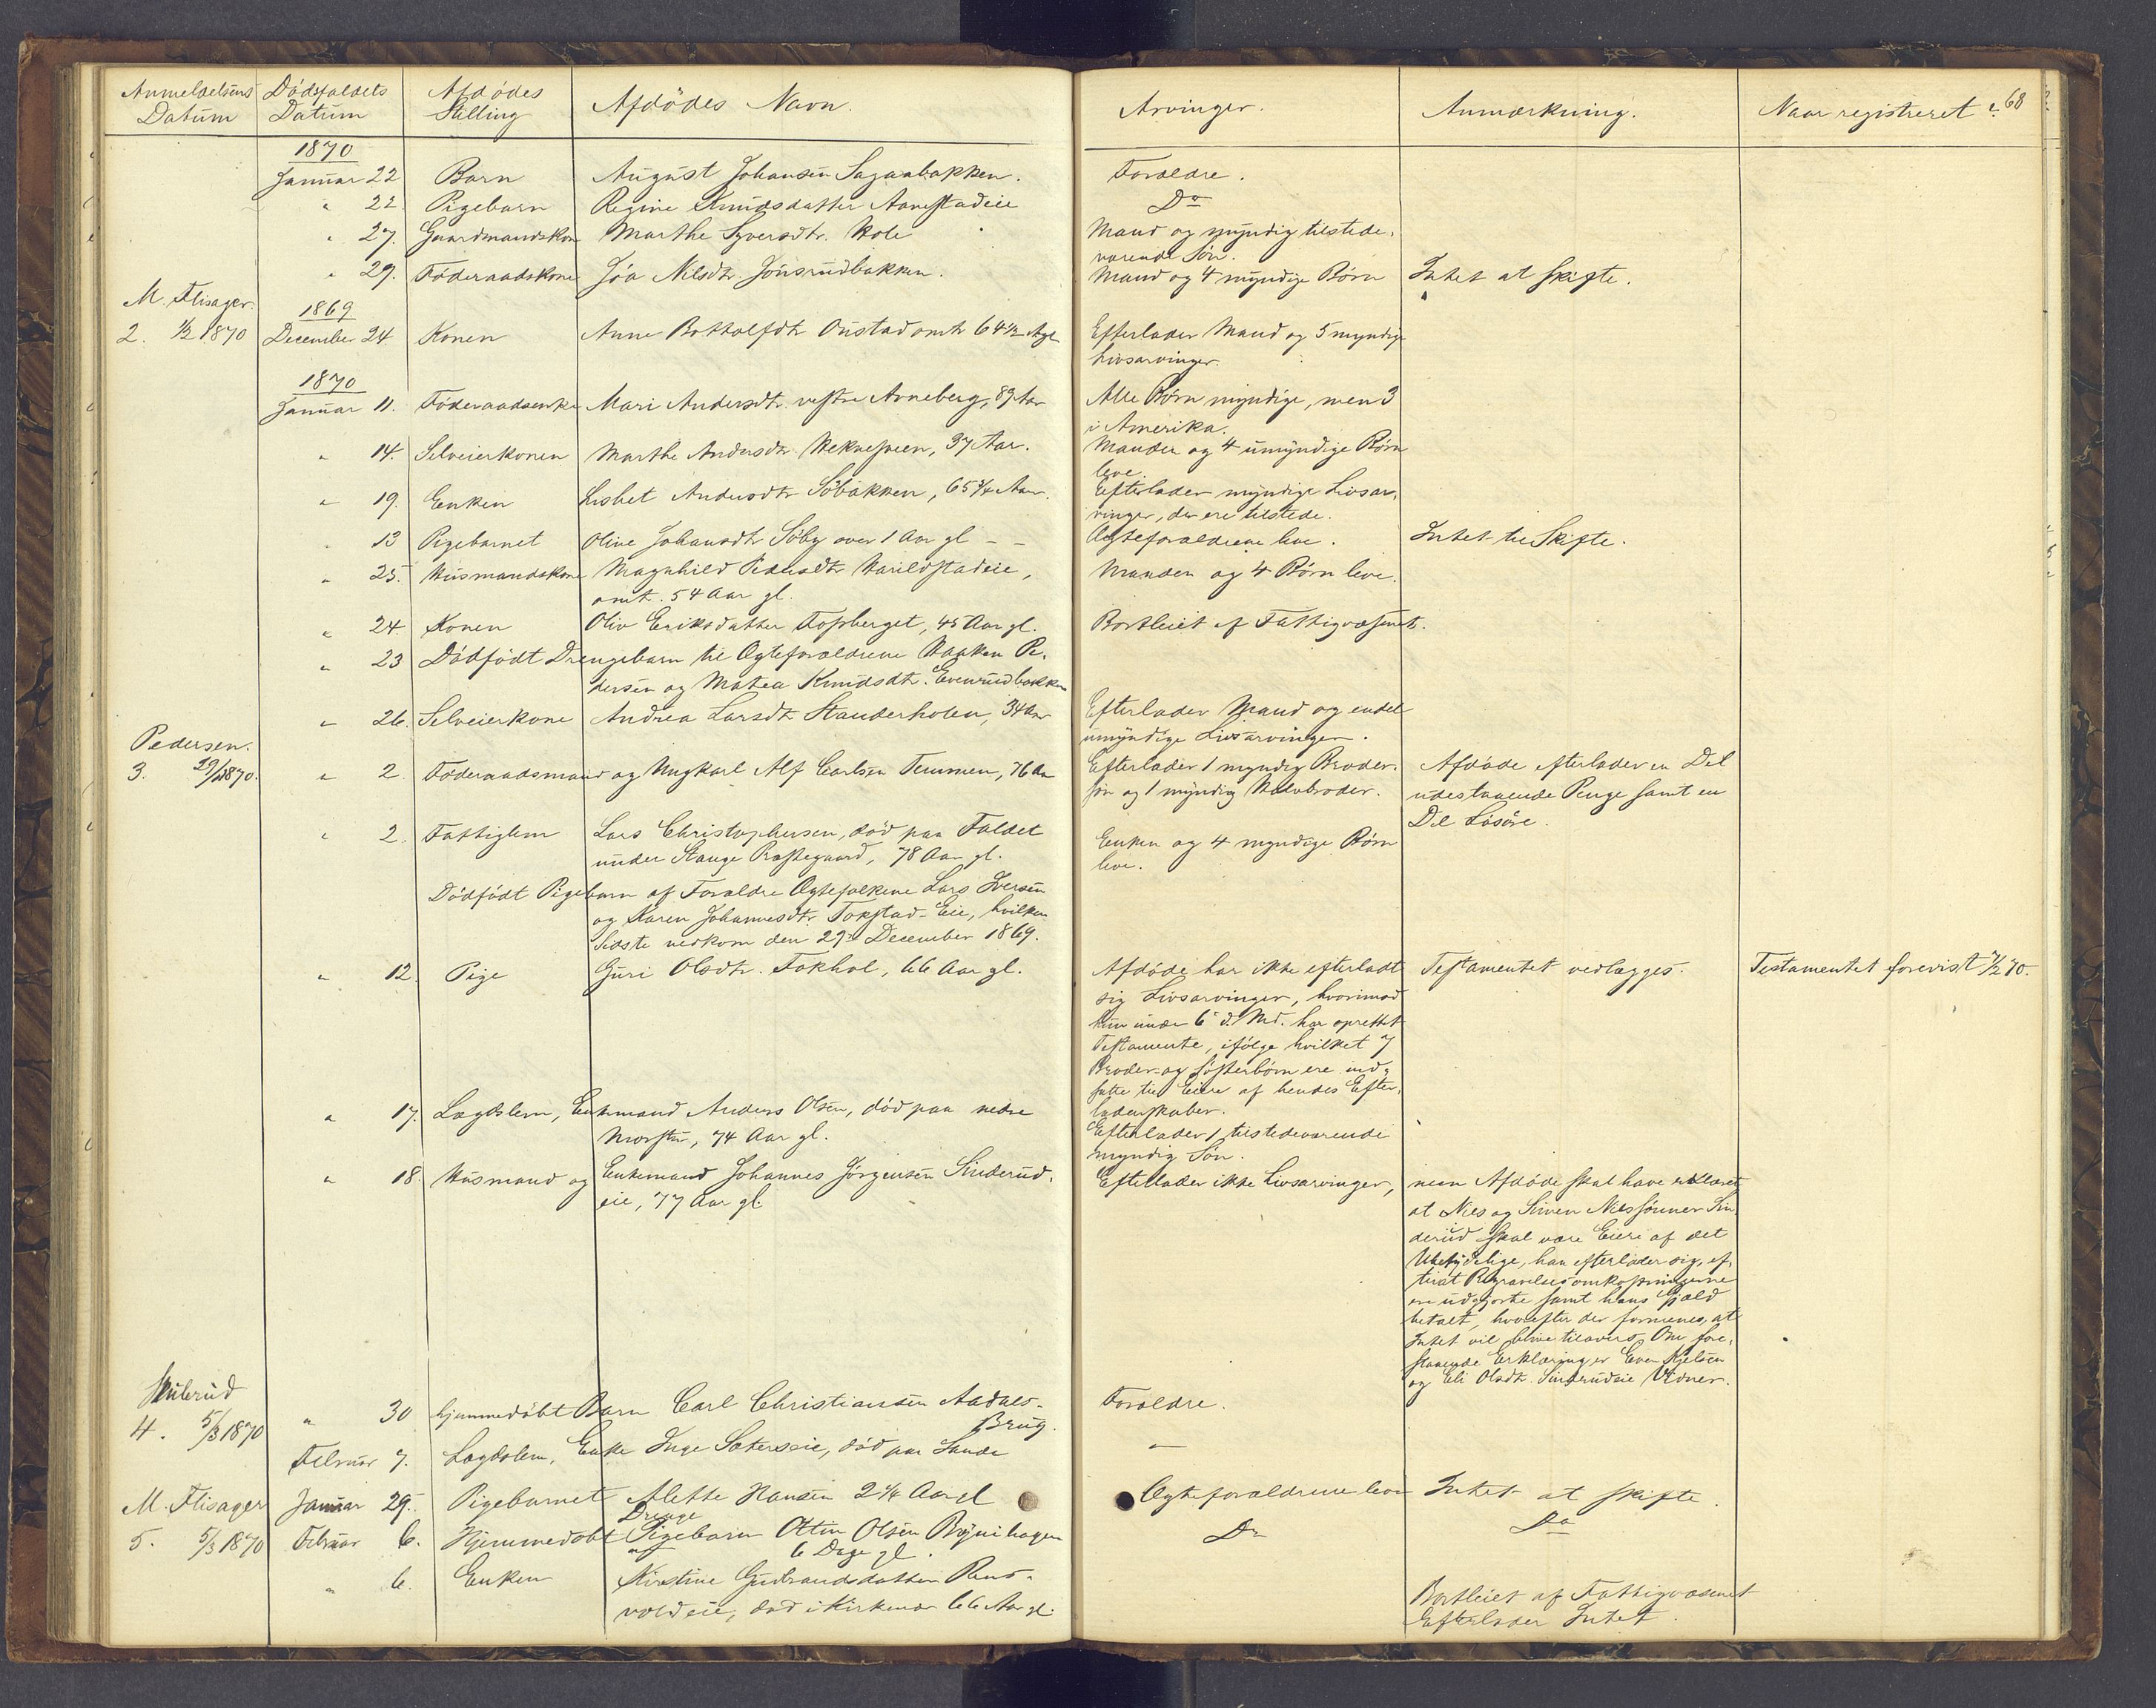 Anmeldelsens Datum | Dødsfaldets Datum | Afdødes Stilling | Afdødes Navn. | Arvinger. | Anmærkning. | Naar registreret?
68
1870
Januar 22 | Barn | August Johansen Sagaabakken. | Forældre.
" 22. | Pigebarn | Regine Knudsdatter Aanestadeie | Do
" 27. | Gaardmandskone | Marthe Syversdtr. Hole | Mand og myndig tilstede-
værende Søn.
" 29. | Føderaadskone | Jøa Nilsdtr. Jønsrudbakken. | Mand og 4 myndige Børn | Intet at skifte.
M. Flisager.
1869
2. 1/2 1870 | December 24 | Konen | Anne Bottolfdtr Oustad omtr 64 1/2 Aar | Efterlader Mand og 5 myndige
Livsarvinger.
1870
Januar 11. | Føderaadsenke | Mari Andersdtr. vestre Arneberg, 89 Aar | Alle Børn myndige, men 3
i Amerika.
" 14. | Selveierkonen | Marthe Andersdtr , 37 Aar. | Manden og 4 umyndige Børn
leve.
" 19. | Enken | Lisbet Andersdtr Søbakken, 65 3/4 Aar. | Efterlader myndige Livsar-
vinger, der ere tilstede.
" 13 | Pigebarnet | Oline Johansdtr Søby over 1 Aar gl | Ægteforældrene leve. | Intet til Skifte.
" 25. | Husmandskone | Magnhild Pedersdtr Harildstadeie, | Manden og 4 Børn leve.
omt. 54 Aar gl.
" 24. | Konen | Oliv Eriksdatter Fosberget, 45 Aar gl. | Bortleiet af Fattigvæsenet.
" 23 | Dødfødt Drengebarn til Ægteforældrene Haaken Pe-
dersen og Mathea Knudsdtr. Evenrudbakken
" 26. | Selveierkone | Andrea Larsdtr Standerholen, 34 Aar | Efterlader Mand og endel
umyndige Livsarvinger.
Pedersen.
3. 29/1 1870. | " 2. | Føderaadsmand og Ungkarl Alf Carlsen Temmen, 76 Aar | Efterlader 1 myndig Broder- | Afdøde efterlader en Del
søn og 1 myndig Halvbroder. | udestaaende Penge samt en
Del Løsøre.
" 2. | Fattiglem | Lars Christophersen, død paa Faldet | Enken og 4 myndige Børn
under Stange Præstegaard, 78 Aar gl. | leve.
Dødfødt Pigebarn af Forældre Ægtefolkene Lars Iversen
og Karen Johannesdtr. Tokstad-Eie, hvilken
Sidste nedkom den 29de December 1869.
" 12. | Pige | Guri Olsdtr. Fokhol, 66 Aar gl. | Afdøde har ikke efterladt | Testamentet vedlægges. | Testamentet forevist 7/2 70.
sig Livsarvinger, hvorimod
hun under 6te d. Md. har oprettet
Testamente, ifølge hvilket 7
Broder- og Søsterbørn ere ind-
satte til Eiere af hendes Efter-
ladenskaber.
" 17. | Lægdslem, Enkemand Anders Olsen, død paa nedre | Efterlader 1 tilstedeværende
, 74 Aar gl. | myndig Søn.
" 18. | Husmand og Enkemand Johannes Jørgensen Sinderud- | Efterlader ikke Livsarvinger, | men Afdøde skal have erklæret,
eie, 77 Aar gl. | at Nils og Simen Nilssønner Sin-
derud skal være Eiere af det
Ubetydelige, han efterlader sig, ef-
terat Begravelsesomkostningerne
ere udgjorte samt hans Gjæld
betalt, hvorefter der formenes, at
Intet vil blive tilovers. Om fore-
staaende Erklæring er Even Kjelsen
og Eli Olsdtr. Sinderudeie Vidner.
Huberud
4. 5/3 1870 | " 30 | hjemmedøbt Barn Carl Christiansen Aadals- | Forældre.
Brug.
Februar 7. | Lægdslem, Enke Inge Sæterseie, død paa Sande | -
M. Flisager | Januar 29. | Pigebarnet Alette Hansen 2 1/4 Aar gl | Ægteforældrene leve | Intet at skifte.
Drenge
5. 5/3 1870 | Februar 6. | Hjemmedøbt Pigebarn Ottin Olsen Bynihagen | Do | Do
6 Dage gl.
" 6. | Enken | Kirstine Gudbrandsdatter Rens- | Bortleiet af Fattigvæsenet
voldeie, død i Kirkenær 66 Aar gl. | Efterlader Intet.